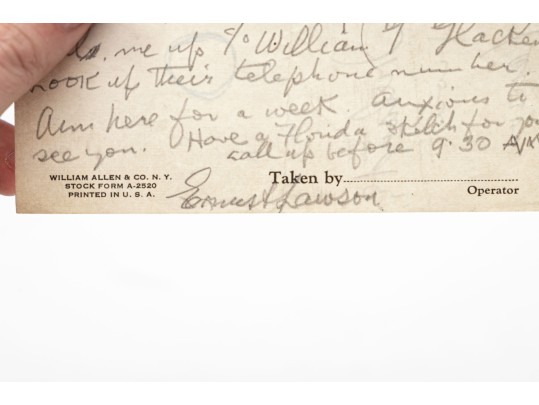 me up c/o William J Glacken
LOOK up their telephone number.
Am here for a week. anxious to
see you. Have a Florida sketch for you
call up before 9.30 A.M.
WILLIAM ALLEN & CO. N. Y.
STOCK FORM A-2520
PRINTED IN U. S. A.
Taken by
Operator
Ernest Lawson